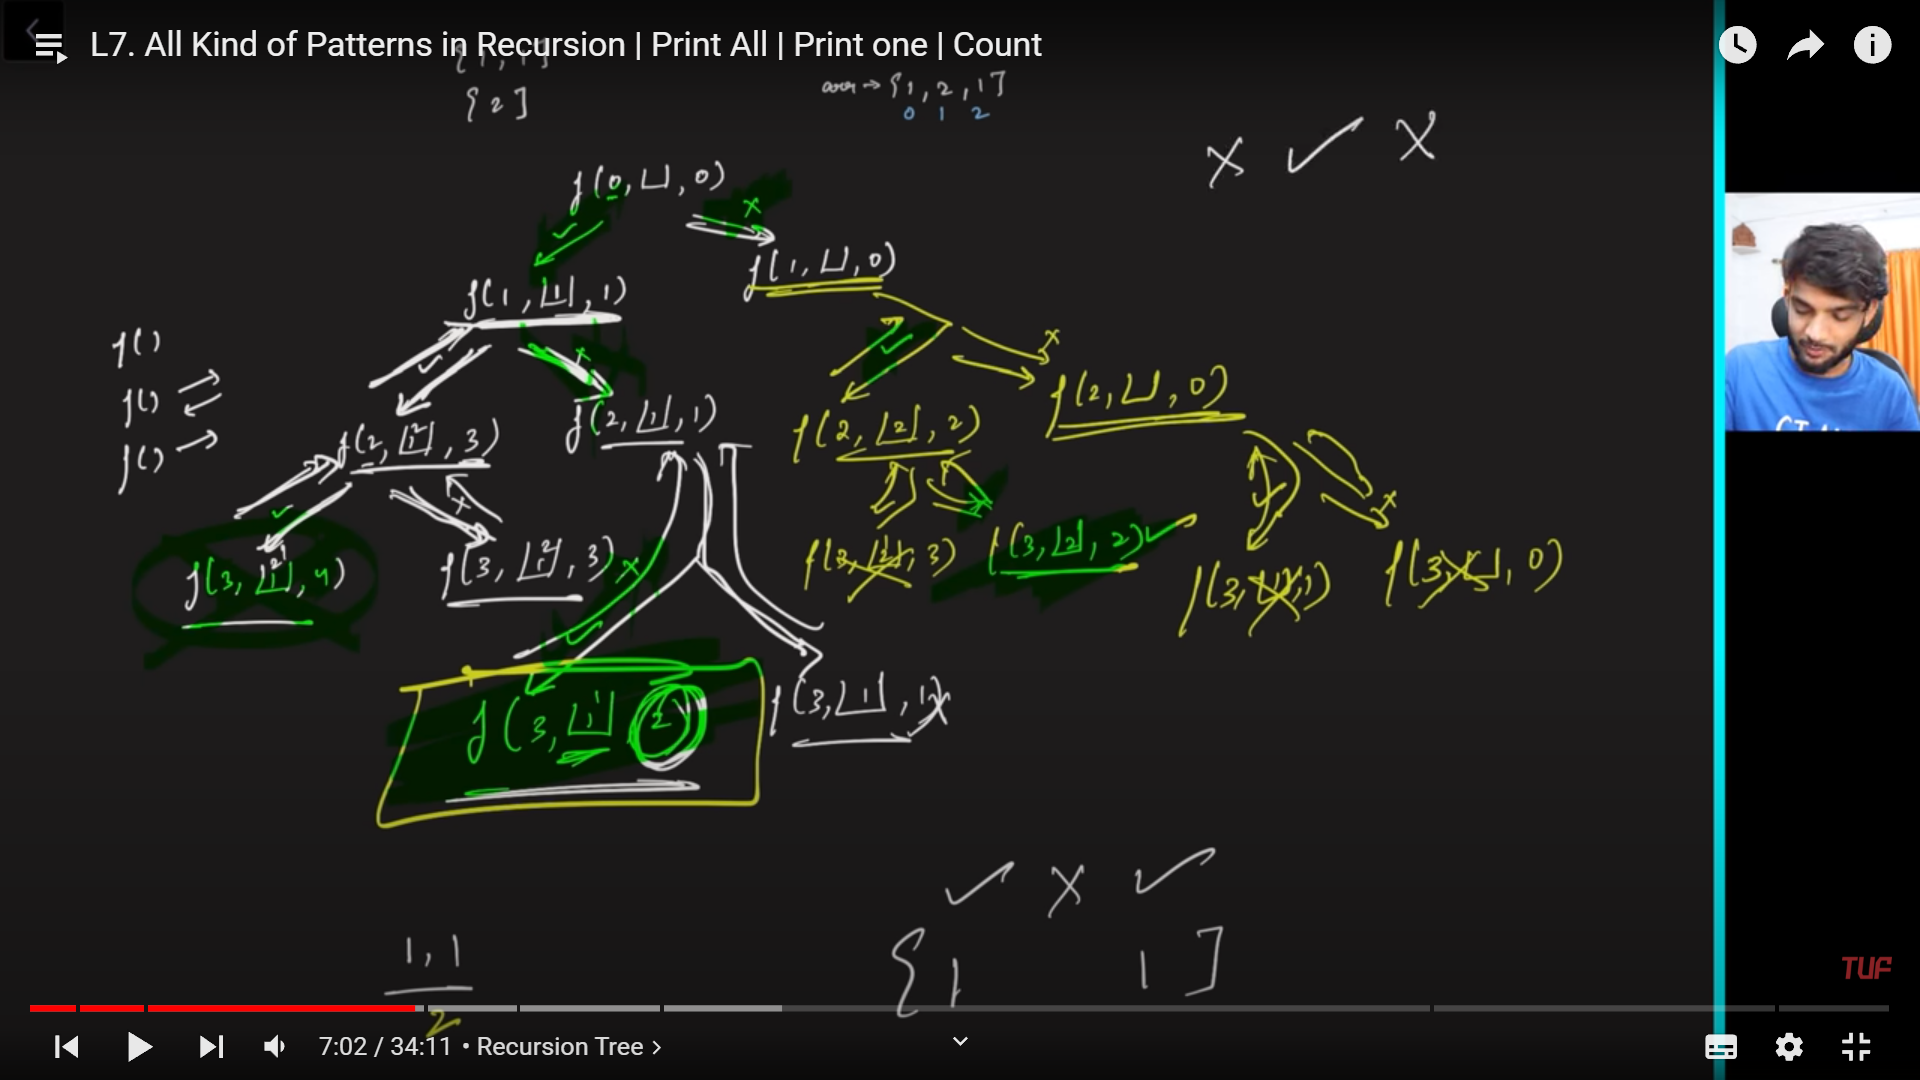 L7. All Kind of Patterns in Recursion | Print All | Print one | Count
{1, 1]
{2]
arr → {1, 2, 1]
0 1 2
x ✓ x
f(0, ⊔, 0)
✓ x
f(1, ⊔, 0)
f(1, |1|, 1)
f()
✓ x ✓ x
f()
f(2, ⊔, 0)
f(2, |1 2|, 3) f(2, |1|, 1) f(2, |2|, 2)
f()
✓ x
f(3, |1 2 1|, 4) f(3, |1 2|, 3) x f(3, |2 1|, 3) f(3, |2|, 2) ✓ f(3, |1|, 1) f(3, ⊔, 0)
✓
f(3, |1 1|, 2) f(3, |1|, 1) x
✓ x ✓
1, 1
{1 1]
2
TUF
7:02 / 34:11 • Recursion Tree